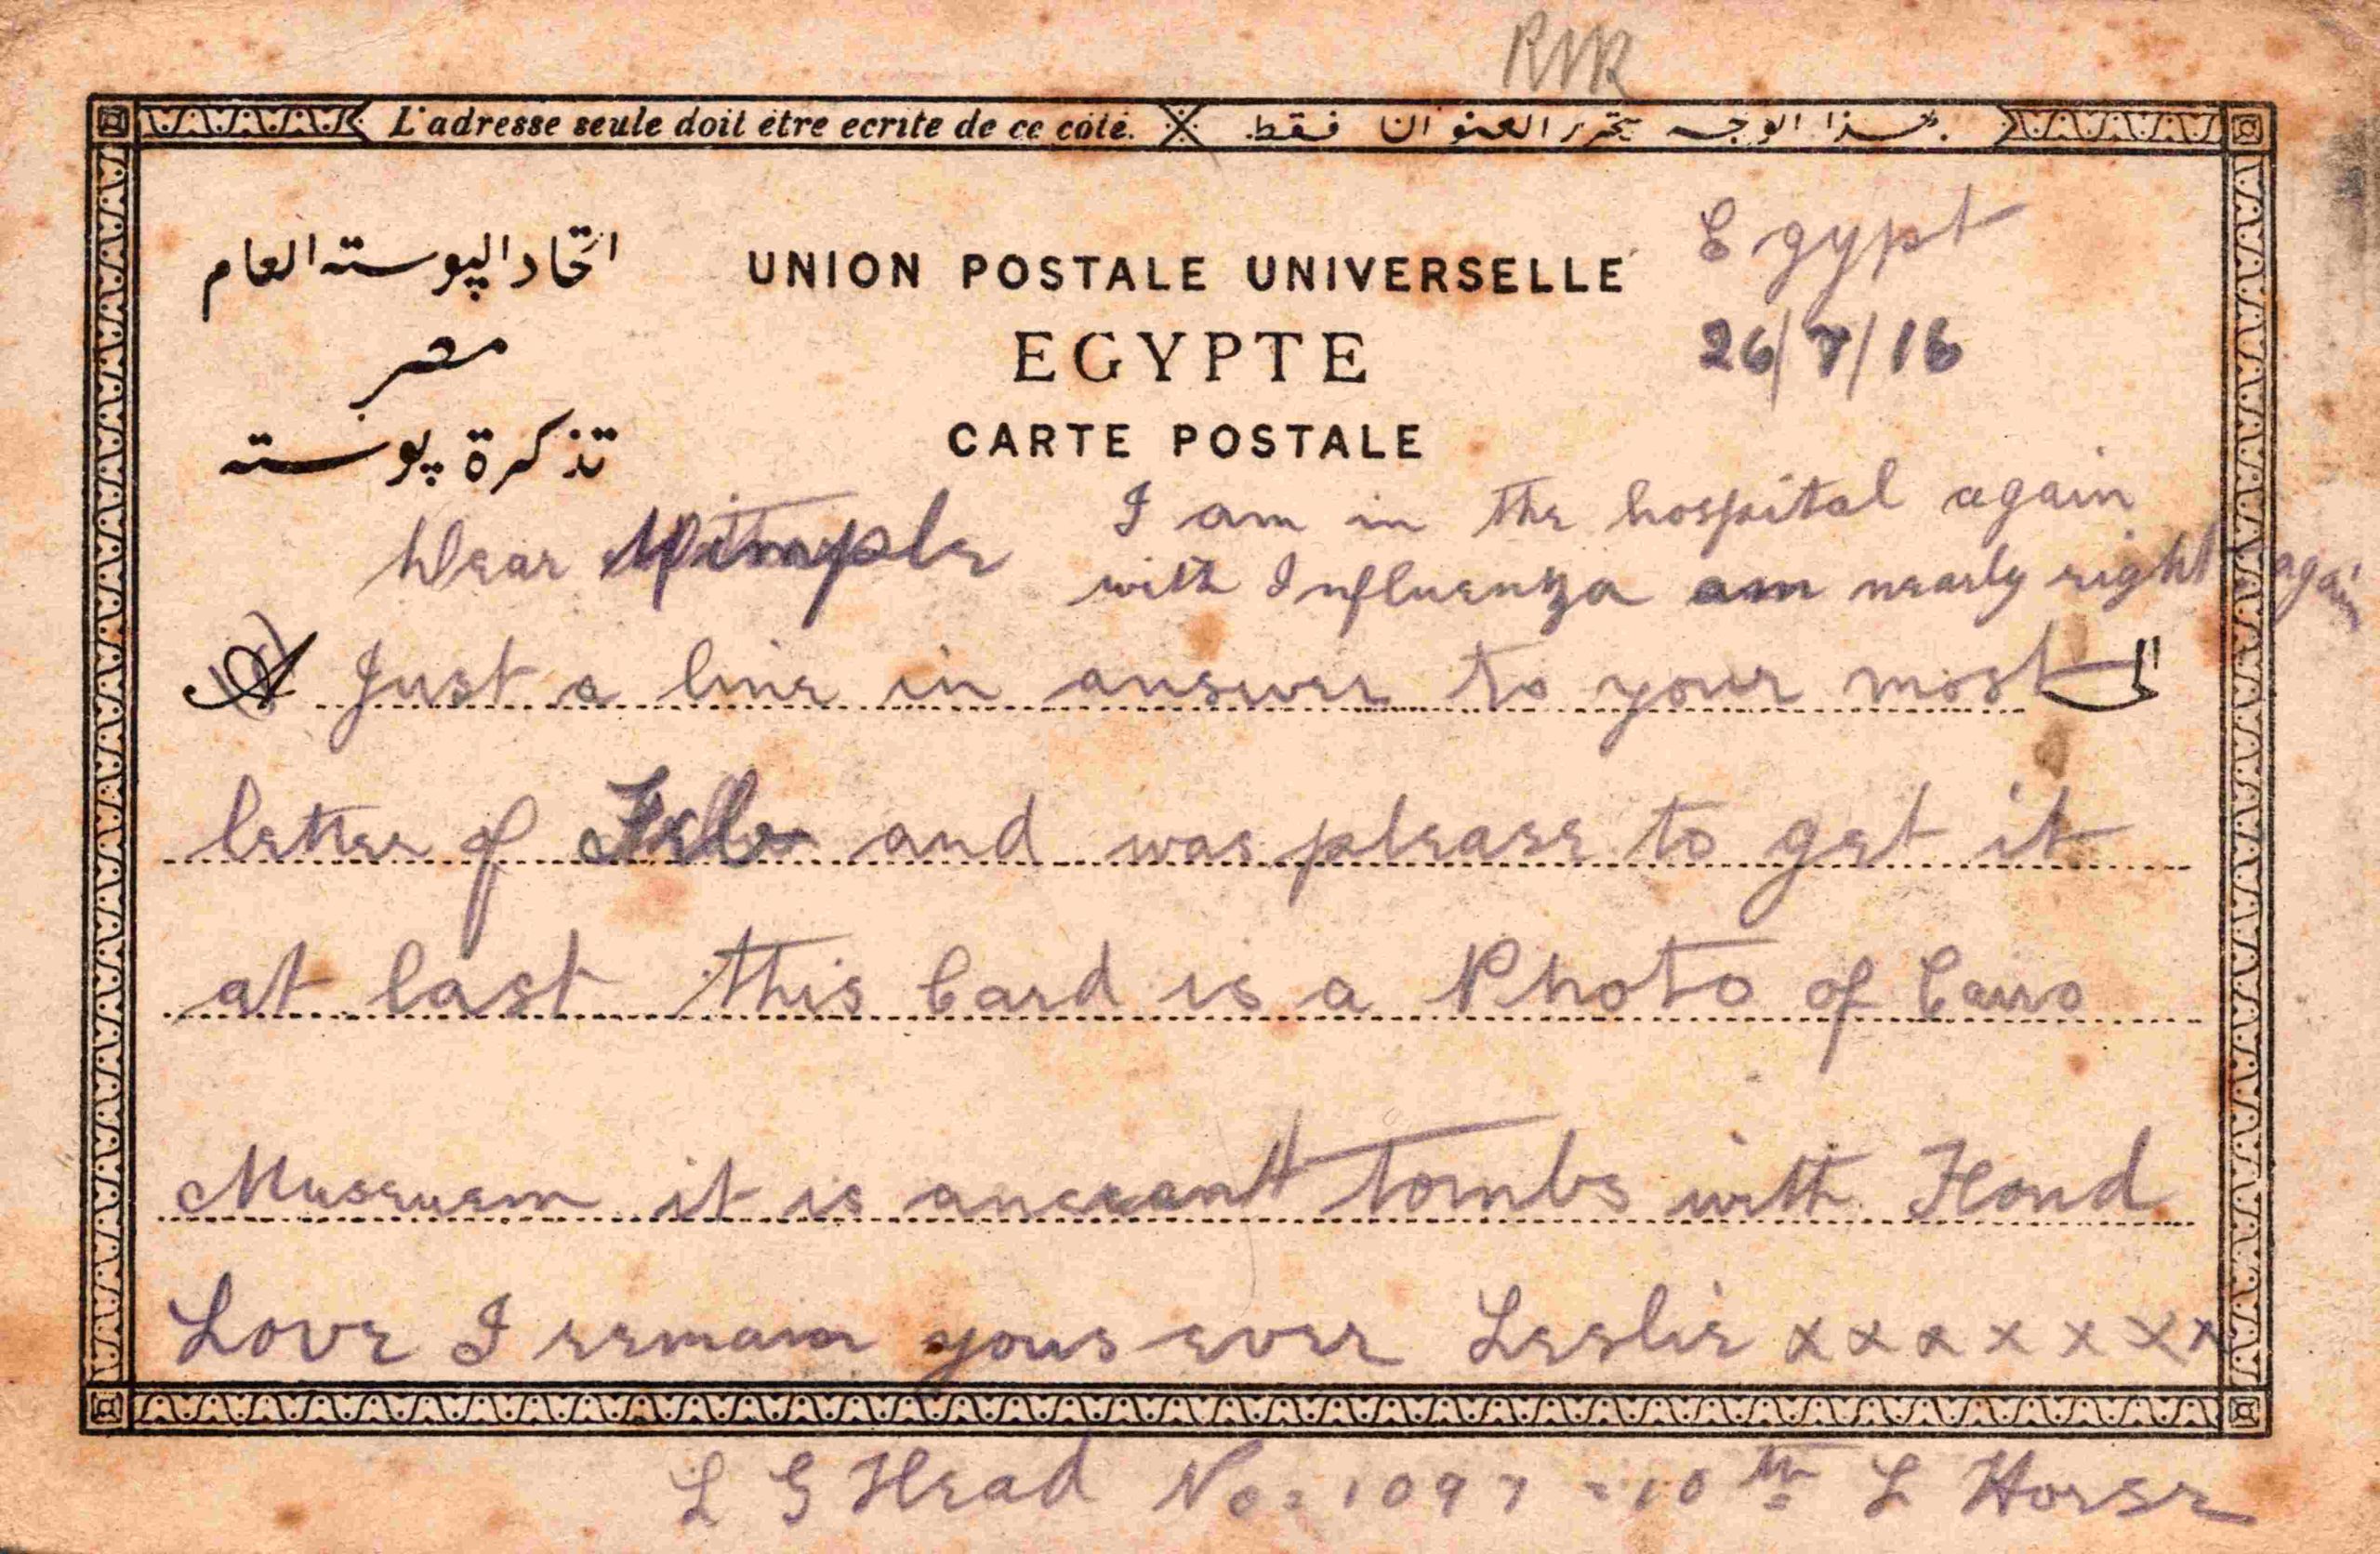 RMR
L'adresse seule doit être ecrite de ce côté. هذا الوجه يحرر العنوان فقط.
اتحاد الپوسته العام
مصر
تذكرة پوسته
UNION POSTALE UNIVERSELLE
EGYPTE
CARTE POSTALE
Egypt
26/7/16
Dear
I am in the hospital again
with Influenza am nearly right again
A Just a line in answer to your most الى
letter of Feb and was please to get it
at last this Card is a Photo of Cairo
Museuem it is anceant tombs with Fond
Love I remain yours ever Leslie x x x x x x x
L G Head No = 1097 = 10th L Horse